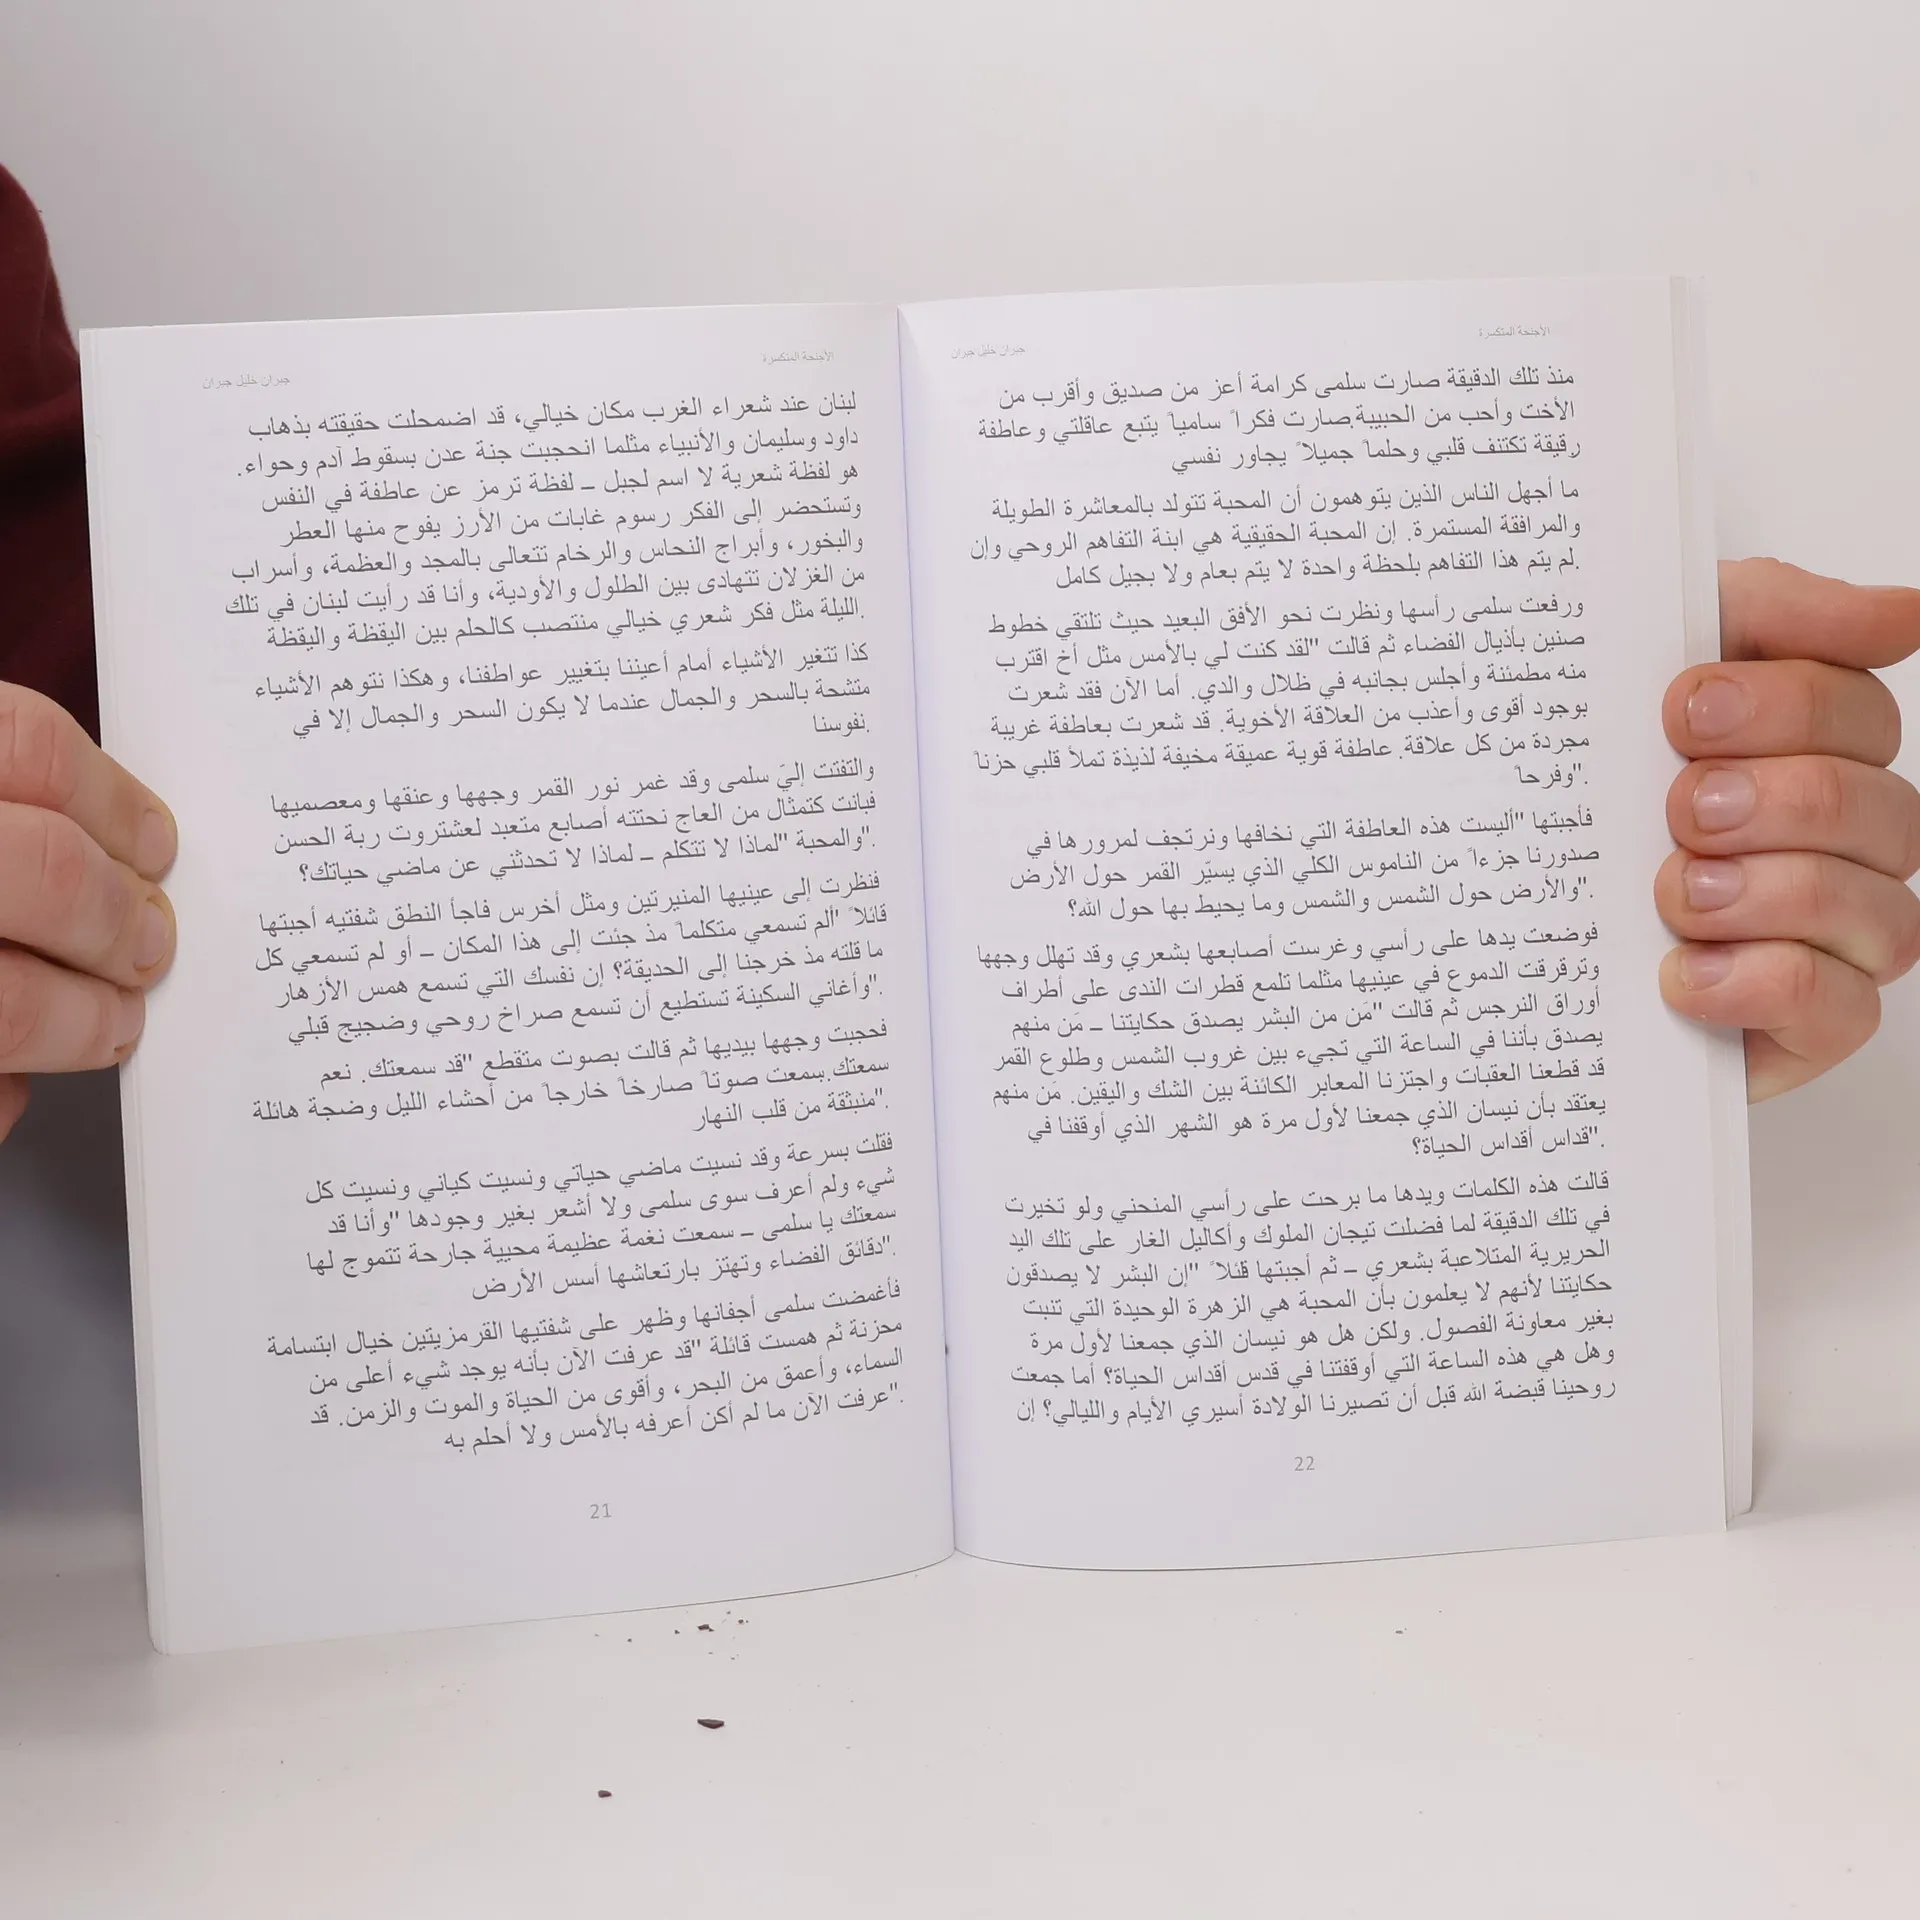 الأجنحة المتكسرة
جبران خليل جبران
لبنان عند شعراء الغرب مكان خيالي، قد اضمحلت حقيقته بذهاب
داود وسليمان والأنبياء مثلما انحجبت جنة عدن بسقوط آدم وحواء.
هو لفظة شعرية لا اسم لجبل – لفظة ترمز عن عاطفة في النفس
وتستحضر إلى الفكر رسوم غابات من الأرز يفوح منها العطر
والبخور، وأبراج النحاس والرخام تتعالى بالمجد والعظمة، وأسراب
من الغزلان تتهادى بين الطلول والأودية، وأنا قد رأيت لبنان في تلك
.الليلة مثل فكر شعري خيالي منتصب كالحلم بين اليقظة واليقظة
كذا تتغير الأشياء أمام أعيننا بتغيير عواطفنا، وهكذا نتوهم الأشياء
متشحة بالسحر والجمال عندما لا يكون السحر والجمال إلا في
.نفوسنا
والتفتت إليَ سلمى وقد غمر نور القمر وجهها وعنقها ومعصميها
فبانت كتمثال من العاج نحتته أصابع متعبد لعشتروت ربة الحسن
."والمحبة "لماذا لا تتكلم – لماذا لا تحدثني عن ماضي حياتك؟
فنظرت إلى عينيها المنيرتين ومثل أخرس فاجأ النطق شفتيه أجبتها
قائلاً "ألم تسمعي متكلماً مذ جئت إلى هذا المكان – أو لم تسمعي كل
ما قلته مذ خرجنا إلى الحديقة؟ إن نفسك التي تسمع همس الأزهار
."وأغاني السكينة تستطيع أن تسمع صراخ روحي وضجيج قبلي
فحجبت وجهها بيديها ثم قالت بصوت متقطع "قد سمعتك. نعم
سمعتك.سمعت صوتاً صارخاً خارجاً من أحشاء الليل وضجة هائلة
."منبثقة من قلب النهار
فقلت بسرعة وقد نسيت ماضي حياتي ونسيت كياني ونسيت كل
شيء ولم أعرف سوى سلمى ولا أشعر بغير وجودها "وأنا قد
سمعتك يا سلمى – سمعت نغمة عظيمة محيية جارحة تتموج لها
."دقائق الفضاء وتهتز بارتعاشها أسس الأرض
فأغمضت سلمى أجفانها وظهر على شفتيها القرمزيتين خيال ابتسامة
محزنة ثم همست قائلة "قد عرفت الآن بأنه يوجد شيء أعلى من
السماء، وأعمق من البحر، وأقوى من الحياة والموت والزمن. قد
."عرفت الآن ما لم أكن أعرفه بالأمس ولا أحلم به
21
الأجنحة المتكسرة
جبران خليل جبران
منذ تلك الدقيقة صارت سلمى كرامة أعز من صديق وأقرب من
الأخت وأحب من الحبيبة.صارت فكراً سامياً يتبع عاقلتي وعاطفة
رقيقة تكتنف قلبي وحلماً جميلاً يجاور نفسي
ما أجهل الناس الذين يتوهمون أن المحبة تتولد بالمعاشرة الطويلة
والمرافقة المستمرة. إن المحبة الحقيقية هي ابنة التفاهم الروحي وإن
.لم يتم هذا التفاهم بلحظة واحدة لا يتم بعام ولا بجيل كامل
ورفعت سلمى رأسها ونظرت نحو الأفق البعيد حيث تلتقي خطوط
صنين بأذيال الفضاء ثم قالت "لقد كنت لي بالأمس مثل أخ اقترب
منه مطمئنة وأجلس بجانبه في ظلال والدي. أما الآن فقد شعرت
بوجود أقوى وأعذب من العلاقة الأخوية. قد شعرت بعاطفة غريبة
مجردة من كل علاقة. عاطفة قوية عميقة مخيفة لذيذة تملأ قلبي حزناً
."وفرحاً
فأجبتها "أليست هذه العاطفة التي نخافها ونرتجف لمرورها في
صدورنا جزءاً من الناموس الكلي الذي يسيّر القمر حول الأرض
."والأرض حول الشمس والشمس وما يحيط بها حول الله؟
فوضعت يدها على رأسي وغرست أصابعها بشعري وقد تهلل وجهها
وترقرقت الدموع في عينيها مثلما تلمع قطرات الندى على أطراف
أوراق النرجس ثم قالت "مَن من البشر يصدق حكايتنا – مَن منهم
يصدق بأننا في الساعة التي تجيء بين غروب الشمس وطلوع القمر
قد قطعنا العقبات واجتزنا المعابر الكائنة بين الشك واليقين. مَن منهم
يعتقد بأن نيسان الذي جمعنا لأول مرة هو الشهر الذي أوقفنا في
."قداس أقداس الحياة؟
قالت هذه الكلمات ويدها ما برحت على رأسي المنحني ولو تخيرت
في تلك الدقيقة لما فضلت تيجان الملوك وأكاليل الغار على تلك اليد
الحريرية المتلاعبة بشعري – ثم أجبتها قائلاً "إن البشر لا يصدقون
حكايتنا لأنهم لا يعلمون بأن المحبة هي الزهرة الوحيدة التي تنبت
بغير معاونة الفصول. ولكن هل هو نيسان الذي جمعنا لأول مرة
وهل هي هذه الساعة التي أوقفتنا في قدس أقداس الحياة؟ أما جمعت
روحينا قبضة الله قبل أن تصيرنا الولادة أسيري الأيام والليالي؟ إن
22